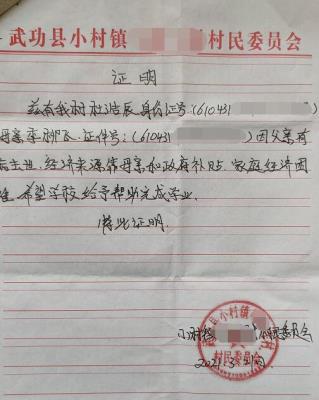 武功县小村镇 村民委员会
证明
兹有我村杜浩辰身份证号(610431
母亲李柳瓦.证件号:(610431 因父亲有
病去世,经济来源靠母亲和政府补贴.家庭经济困
难.希望学校给予帮助完成学业.
特此证明.
小村镇 村民委员会
2021.3.
武功县小村镇 村
村民委员会